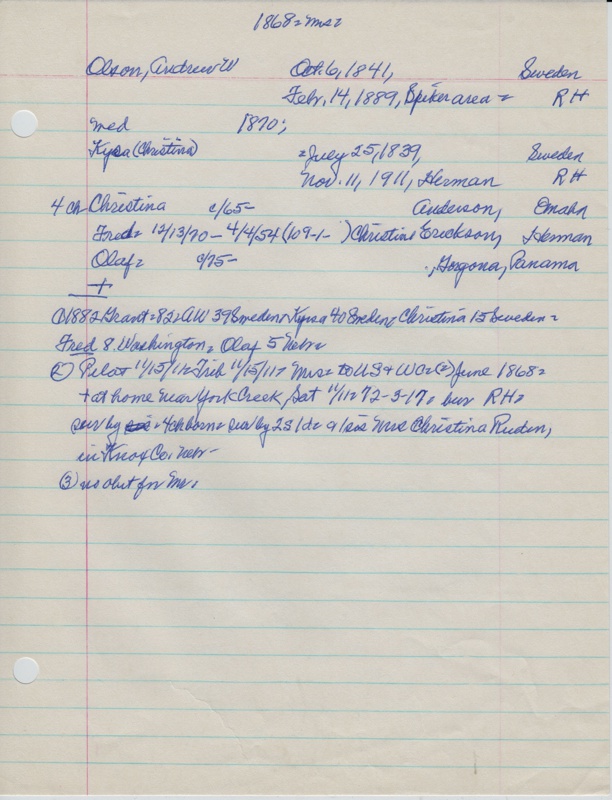 1868 = Mrs =
Olson, Andrew W Oct. 6, 1841, Sweden
Febr. 14, 1889, Spiker area = RH
Med 1870;
Kysa (Christina) = July 25, 1839, Sweden
Nov. 11, 1911, Herman RH
4 ch Christina c/65- Anderson, Omaha
Fred = 12/13/70 - 4/4/54 (109-1- ) Christine Erickson, Herman
Olaf = c/75- , Gorgona, Panama
+
① 1882 Grant = 82 = AW 39 Sweden, Kysa 40 Sweden, Christina 15 Sweden =
Fred 8 Washington, Olaf 5 Nebr =
② Pilot 11/15/11 = Trib 11/15/11 = Mrs = to US + WC = (2) June 1868 =
+ at home near York Creek, Sat 11/11 = 72-3-17 = bur RH =
sur by = 4 ch born = sur by 2s 1d = a 1 sis Mrs Christina Ruden,
in Knox Co. Nebr -
③ no obit for Mr.